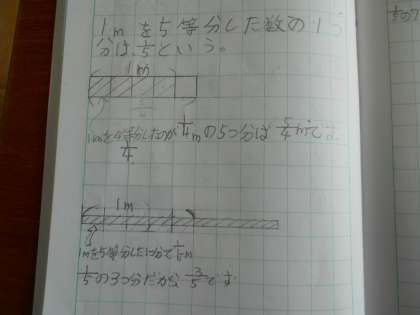 1mを5等分した数の1つ
分は1/5という。
1m
1mを4等分したのが1/4mの5つ分は5/4mです
1/4
1m
1mを5等分した1つ分で1/5m
1/5の3つ分だから3/5です